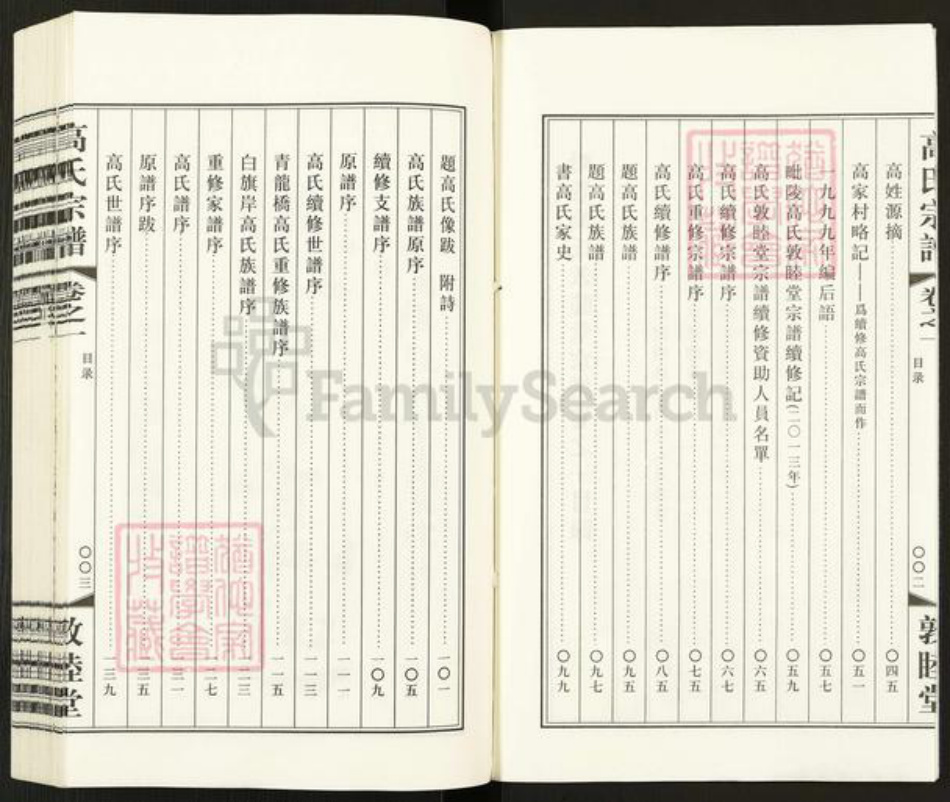 高氏宗譜
卷之一
目录
〇〇二
敦睦堂
高姓源摘 〇四五
高家村略記——爲續修高氏宗譜而作 〇五一
一九九九年編后語 〇五七
毗陵高氏敦睦堂宗譜續修記(二〇一三年) 〇五九
高氏敦睦堂宗譜續修資助人員名單 〇六五
高氏續修宗譜序 〇六七
高氏重修宗譜序 〇七五
高氏續修譜序 〇八五
題高氏族譜 〇九五
題高氏族譜 〇九七
書高氏家史 〇九九
題高氏像跋 附詩 一〇一
高氏族譜原序 一〇五
續修支譜序 一〇九
原譜序 一一一
高氏續修世譜序 一一三
青龍橋高氏重修族譜序 一一五
白旗岸高氏族譜序 一二三
重修家譜序 一二七
高氏譜序 一三一
原譜序跋 一三五
高氏世譜序 一三九
高氏宗譜
卷之一
目录
〇〇三
敦睦堂
FamilySearch